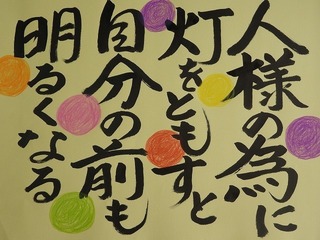 人様の為に
灯をともすと
自分の前も
明るくなる